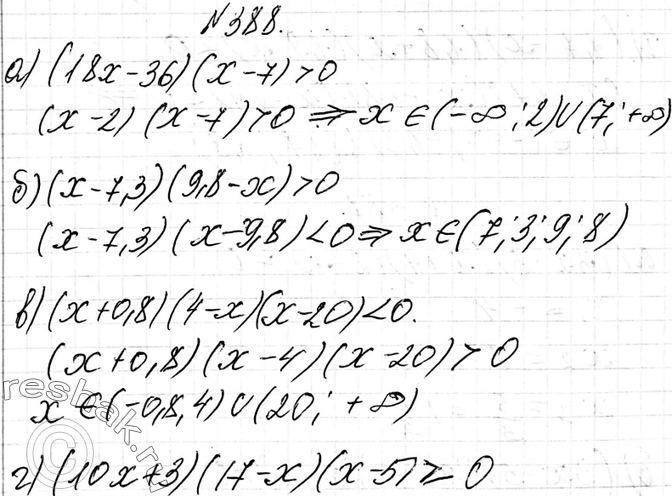 №388.
а) (18x-36)(x-7)>0
(x-2)(x-7)>0 ⇒ x∈(-∞;2)∪(7;+∞)
б) (x-7,3)(9,8-x)>0
(x-7,3)(x-9,8)<0 ⇒ x∈(7;3;9;8)
в) (x+0,8)(4-x)(x-20)<0.
(x+0,8)(x-4)(x-20)>0
x∈(-0,8,4)∪(20;+∞)
г) (10x+3)(17-x)(x-5)≥0
reshak.ru